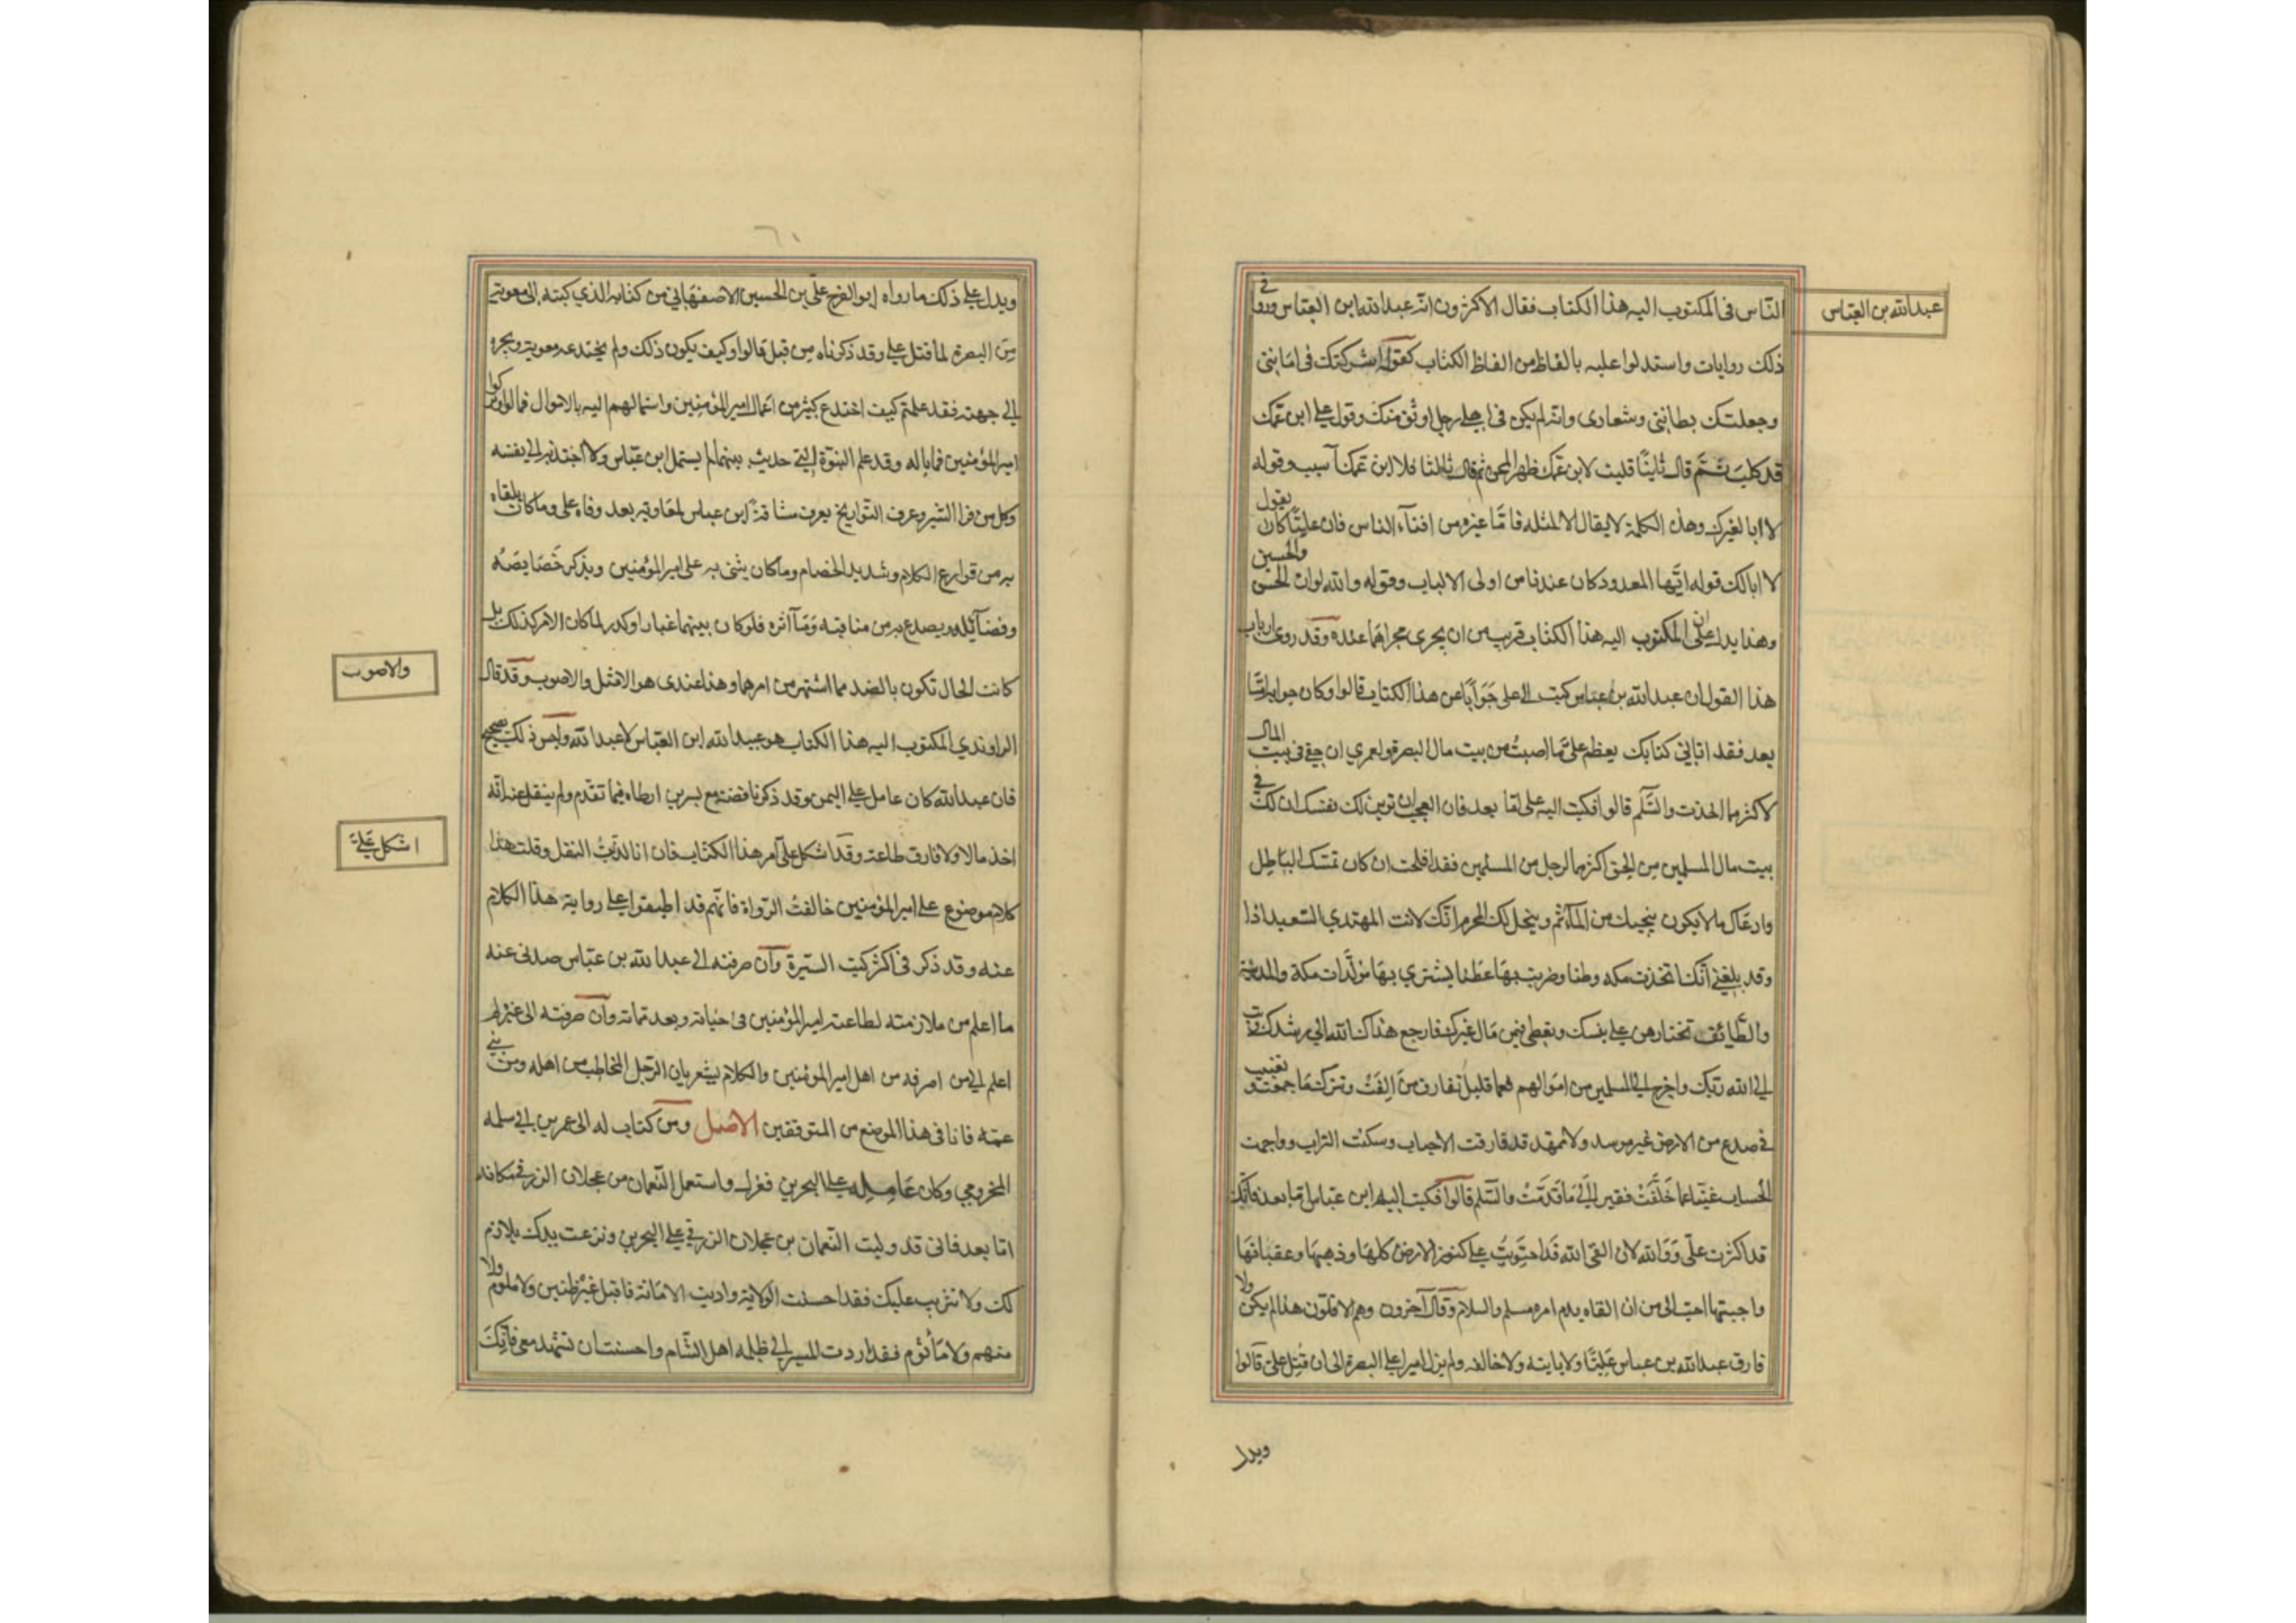 عبد الله بن العباس
الناس في المكتوب اليه هذا الكتاب فقال الاكثرون انه عبد الله ابن العباس ورووا في
ذلك روايات واستدلوا عليه بالفاظ من الفاظ الكتاب كقوله اشركتك في امانتي
وجعلتك بطانتي وشعاري وانه لم يكن في اهلي رجل اوثق منك وقوله على ابن عمك
قد كلب ثم قال ثانيا قلبت لابن عمك ظهر المجن ثم قال ثالثا فلا ابن عمك آسيت وقوله
لا ابا لغيرك وهذه الكلمة لا يقال الا لمثله فاما غيره من افناء الناس فان عليا كان يقول
لا ابا لك قوله ايها المعدود كان عندنا من اولى الالباب وقوله والله لوان الحسن والحسين
وهذا يدل على ان المكتوب اليه هذا الكتاب قريب من ان يجرى مجراهما عنده وقد روى ارباب
هذا القول ان عبد الله بن عباس كتب الى على جوابا عن هذا الكتاب قالوا وكان جوابه اما
بعد فقد اتاني كتابك يعظم علي ما اصبت من بيت مال البصرة ولعمري ان حقي في بيت المال
لاكثر مما اخذت والسلم قالوا فكتب اليه على اما بعد فان العجب ان تزين لك نفسك ان لك في
بيت مال المسلمين من الحق اكثر مما لرجل من المسلمين فقد افلحت ان كان تمنيك الباطل
وادعاك ما لا يكون ينجيك من المآثم ويحل لك المحرم انك لانت المهتدي السعيد اذا
وقد بلغني انك اتخذت مكه وطنا وضربت بها عطنا يشتري بها مولدات مكة والمدينة
والطائف تختارهن على نفسك وتعطي فيهن مال غيرك فارجع هداك الله الى رشدك وتب
الى الله ربك واخرج الى المسلمين من اموالهم فعما قليل تفارق من الفت وتترك ما جمعت وتغيب
في صدع من الارض غير موسد ولا ممهد قد فارقت الاحباب وسكنت التراب وواجهت
الحساب غنيا عما خلفت فقيرا الى ما قدمت والسلم قالوا فكتب اليه ابن عباس اما بعد فانك
قد اكثرت علي ووالله لان القى الله قد احتويت على كنوز الارض كلها وذهبها وعقيانها
احب الى من ان القاه بدم امرء مسلم والسلام وقال آخرون وهم الاقلون هذا لم يكن ولا
فارق عبد الله بن عباس عليا ولا باينه ولا خالفه ولم يزل اميرا على البصرة الى ان قتل على قالوا
ويدل
٦١
ويدل على ذلك ما رواه ابو الفرج علي بن الحسين الاصفهاني من كتابه الذي كتبه الى معوية
من البصرة لما قتل علي وقد ذكرناه من قبل قالوا وكيف يكون ذلك ولم يختدعه معوية ويجره
الى جهته فقد علمتم كيف اختدع كثير من اعمال امير المؤمنين واستمالهم اليه بالاموال فمالوا وتركوا
امير المؤمنين فما باله وقد علم النبوة التي حدثت بينهما لم يستمل ابن عباس ولا اجتذبه الى نفسه
وكل من قرا السير وعرف التواريخ يعرف مشاقة ابن عباس لمعاوية بعد وفاه على وما كان يلقاه
به من قوارع الكلام وشديد الخصام وما كان يثنى به على امير المؤمنين ويذكر خصايصه
وفضآئله ويصدع به من مناقبه ومآثره فلو كان بينهما غبار او كدر لما كان الامر كذلك بل
كانت الحال تكون بالضد مما اشتهر من امرهما وهذا عندى هو الامثل والاصوب وقد قال
والاصوب
الراوندي المكتوب اليه هذا الكتاب هو عبيد الله ابن العباس لا عبد الله وليس ذلك بصحيح
فان عبيد الله كان عامل على اليمن وقد ذكرنا قصته مع بسر بن ارطاه فيما تقدم ولم ينقل عنه انه
اخذ مالا ولا فارق طاعة وقد اشكل علي امر هذا الكتاب فان انا كذبت النقل وقلت هذا
اشكل علي
كلام موضوع على امير المؤمنين خالفت الرواة فانهم قد اطبقوا على رواية هذا الكلام
عنه وقد ذكر في اكثر كتب السيرة وان صرفته الى عبد الله بن عباس صدنى عنه
ما اعلم من ملازمته لطاعته امير المؤمنين في حياته وبعد مماته وان صرفته الى غيره لم
اعلم الى من اصرفه من اهل امير المؤمنين والكلام يشعر بان الرجل المخاطب من اهله ومن بني
عمه فانا في هذا الموضع من المتوقفين الاصل ومن كتاب له الى عمر بن ابي سلمه
المخزومي وكان عامله على البحرين فعزله واستعمل النعمان بن عجلان الزرقي مكانه
اما بعد فانى قد وليت النعمان بن عجلان الزرقي على البحرين ونزعت يدك بلا ذم
لك ولا تثريب عليك فقد احسنت الولاية واديت الامانة فاقبل غير ظنين ولا ملوم ولا
متهم ولا مأثوم فقد اردت المسير الى ظلمه اهل الشام واحببت ان تشهد معى فانك